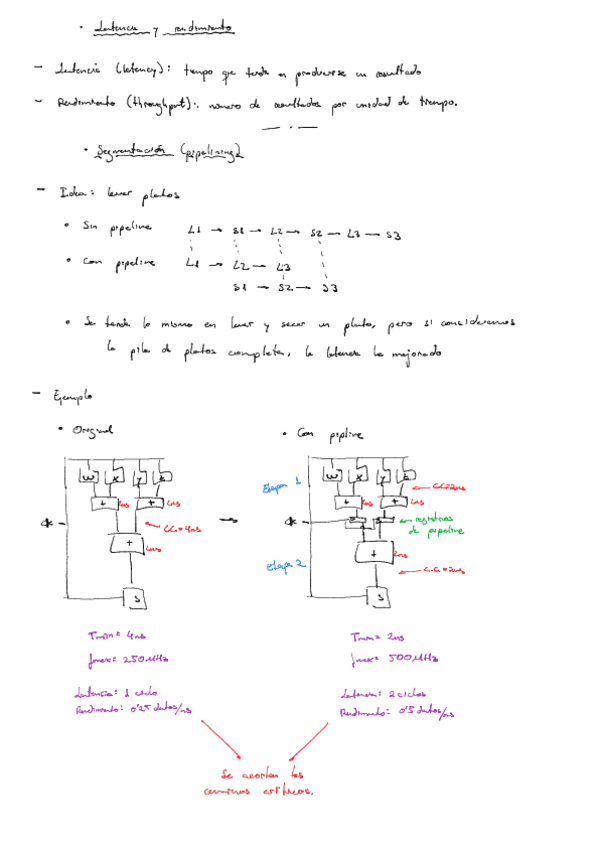 · Latencia y rendimiento
- Latencia (latency): tiempo que tarda en producirse un resultado
- Rendimiento (throughput): número de resultados por unidad de tiempo.
· Segmentación (pipelining)
- Idea: lavar platos
• Sin pipeline L1 → S1 → L2 → S2 → L3 → S3
• Con pipeline L1 → L2 → L3
S1 → S2 → S3
• Se tarda lo mismo en lavar y secar un plato, pero si consideramos
la pila de platos completa, la latencia ha mejorado
- Ejemplo
• Original
• Con pipline
W X Y Z
W X Y Z
Etapa 1
CC=2ns
+ 2ns + 2ns
+ 2ns + 2ns
clk
CC=4ns
→
clk
← registros
de pipeline
+ 2ns
+ 2ns
Etapa 2
C.C.=2ns
S
S
Tmin= 4ns
Tmin= 2ns
fmax= 250MHz
fmax= 500MHz
Latencia: 1 ciclo
Latencia: 2 ciclos
Rendimiento: 0'25 datos/ns
Rendimiento: 0'5 datos/ns
Se acortan los
caminos críticos.